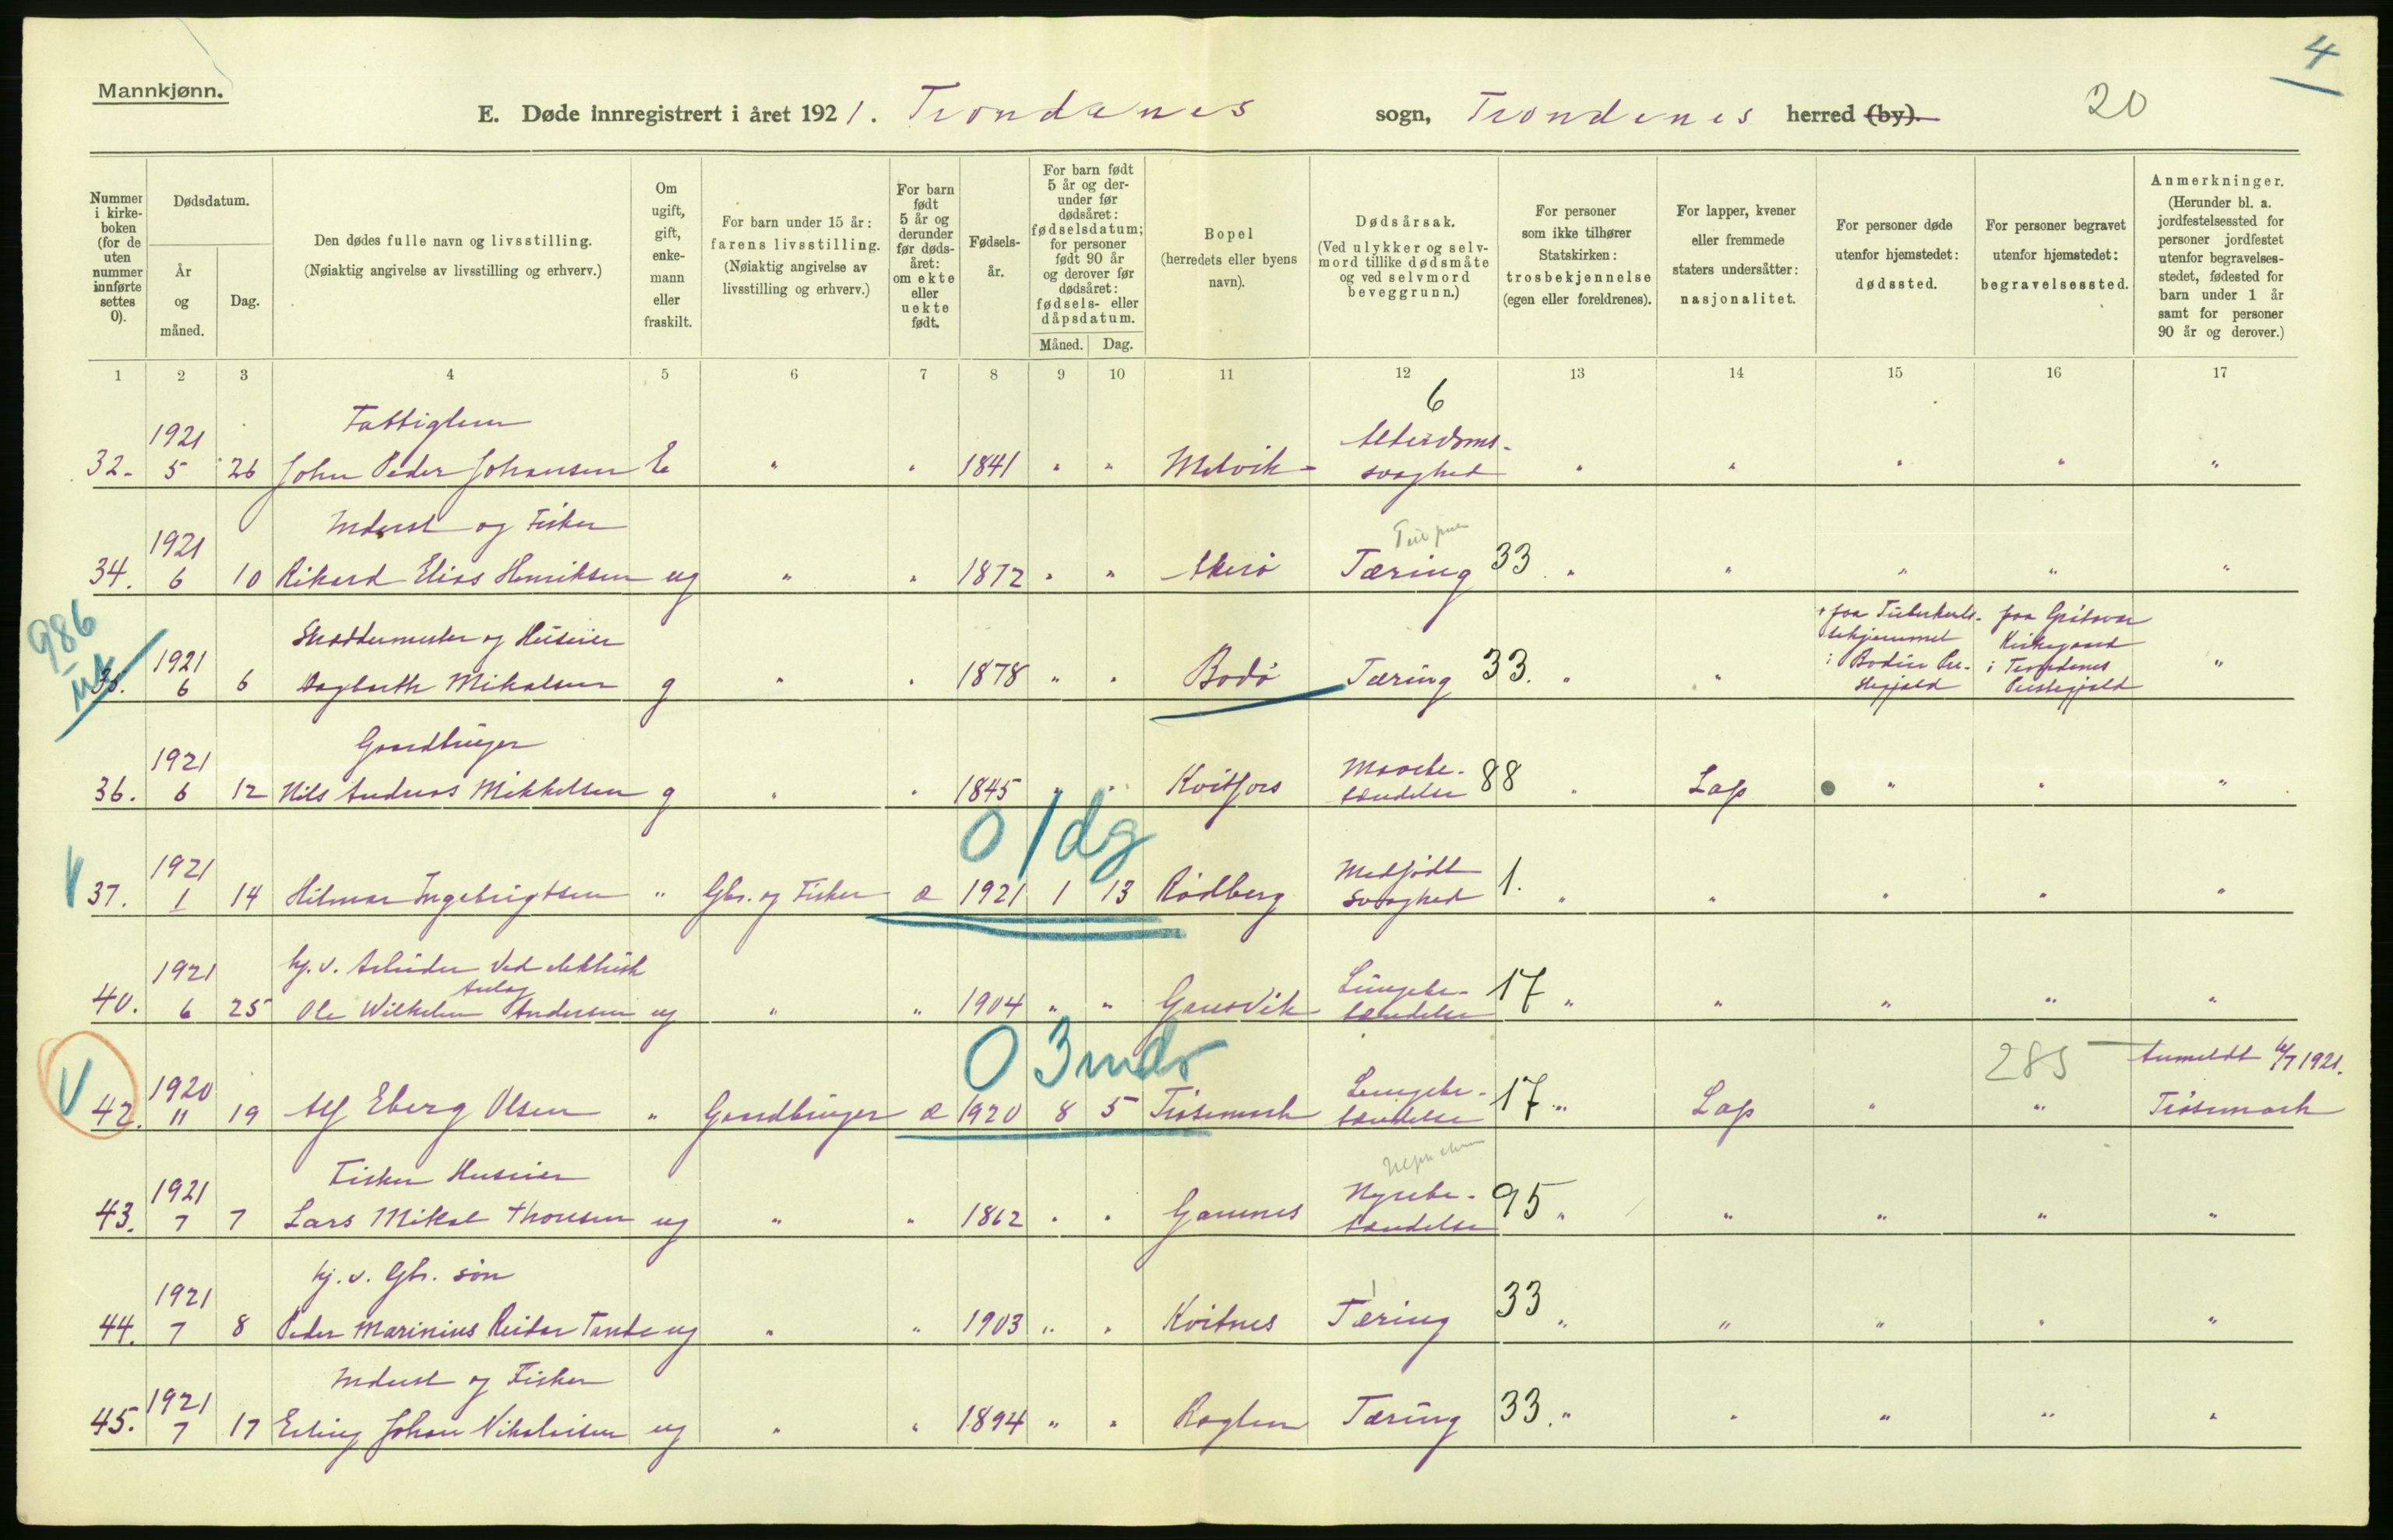 4
Mannkjønn.
E. Døde innregistrert i året 1921. Trondenes sogn, Trondenes herred (by). 20
Nummer i kirkeboken (for de uten nummer innførte settes 0).
Dødsdatum.
År og måned.
Dag.
Den dødes fulle navn og livsstilling.
(Nøiaktig angivelse av livsstilling og erhverv.)
Om ugift, gift, enkemann eller fraskilt.
For barn under 15 år: farens livsstilling.
(Nøiaktig angivelse av livsstilling og erhverv.)
For barn født 5 år og derunder før dødsåret: om ekte eller uekte født.
Fødselsår.
For barn født 5 år og derunder før dødsåret: fødselsdatum; for personer født 90 år og derover før dødsåret: fødsels- eller dåpsdatum.
Måned. Dag.
Bopel
(herredets eller byens navn).
Dødsårsak.
(Ved ulykker og selvmord tillike dødsmåte og ved selvmord beveggrunn.)
For personer som ikke tilhører Statskirken: trosbekjennelse (egen eller foreldrenes).
For lapper, kvener eller fremmede staters undersåtter: nasjonalitet.
For personer døde utenfor hjemstedet: dødssted.
For personer begravet utenfor hjemstedet: begravelsessted.
Anmerkninger.
(Herunder bl. a. jordfestelsessted for personer jordfestet utenfor begravelsesstedet, fødested for barn under 1 år samt for personer 90 år og derover.)
1 2 3 4 5 6 7 8 9 10 11 12 13 14 15 16 17
6
1921 Fattiglem Alderdoms-
32. 5 26 John Peder Johansen E " " 1841 " " Melvik svaghed " " " " "
1921 Inderst og Fisker
34. 6 10 Rikard Elias Henriksen ug " " 1872 " " Tæring 33 " " " " "
986
1921 Skreddermester og Huseier + paa Tuberkulo- paa Grøtavær
sehjemmet Kirkegaard
35. 6 6 Dagbarth Mikalsen g " " 1878 " " Bodø Tæring 33. " " i Bodin Pre- i Trondenes "
stegjeld Prestegjeld
1921 Gaardbruger Mave-
36. 6 12 Nils Andreas Mikkelsen g " " 1845 " " Kvitfors betændelse 88 " Lap " " "
0 1 dg
V 1921 Medfødt
37. 1 14 Hilmar Ingebrigtsen " Gbr. og Fisker æ 1921 1 13 Rødberg svaghed 1. " " " " "
1921 hj. v. Arbeider ved elektrisk Lungebe-
Anlæg
40. 6 25 Ole Wilhelm Andersen ug " " 1904 " " Gausvik tændelse 17 " " " " "
0 3 mdr
V 1920 Lungebe- 285 Anmeldt 1921.
42. 11 19 Alf Eberg Olsen " Gaardbruger æ 1920 8 5 tændelse 17 " Lap " "
1921 Fisker Huseier Nyrebe-
43. 7 7 Lars Mikal Thoresen ug " " 1862 " " Gamnes tændelse 95 " " " " "
1921 hj. v. Gbr. søn
44. 7 8 Peder Marinius Reidar Tande ug " " 1903 " " Kvitnes Tæring 33 " " " " "
1921 Inderst og Fisker
45. 7 17 Erling Johan Nikolaisen ug " " 1894 " " Tæring 33. " " " " "